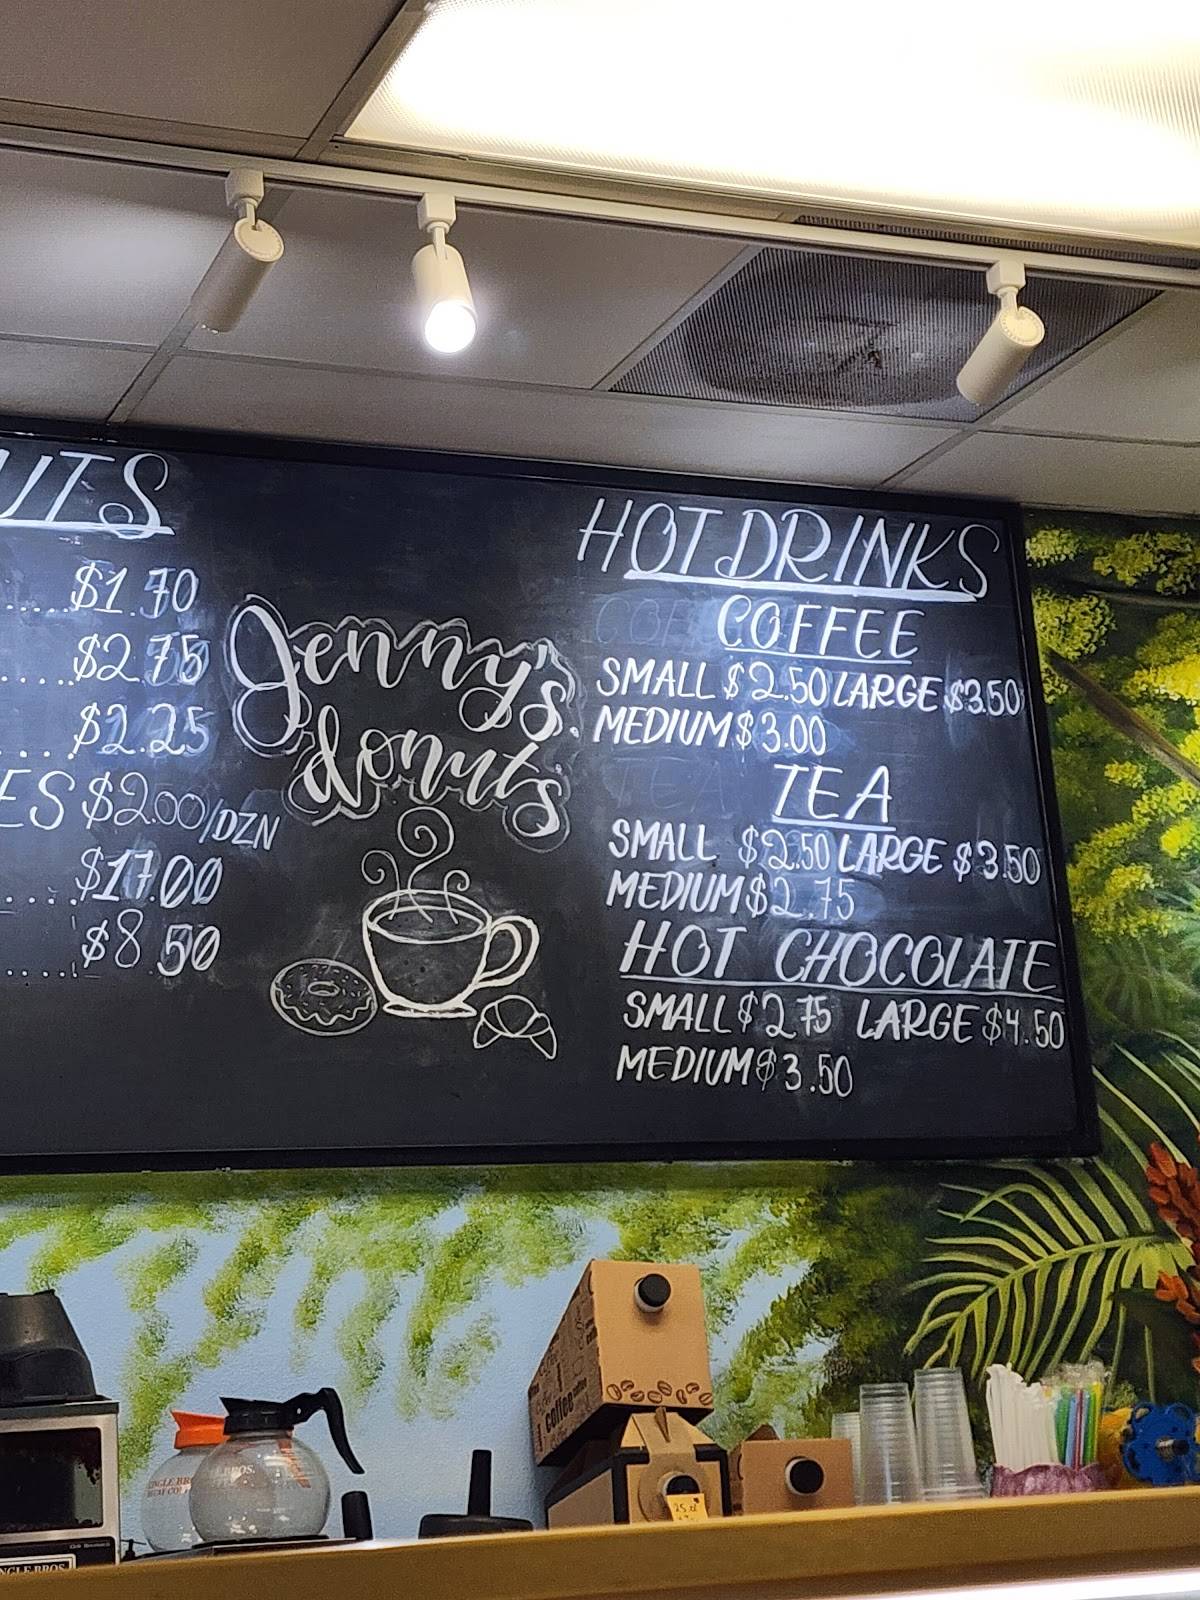 UTS
....$1.70
.....$2.75
....$2.25
ES $2.00/DZN
....$17.00
.....$8.50
Jenny's
donuts
HOT DRINKS
COFFEE
SMALL $2.50 LARGE $3.50
MEDIUM $3.00
TEA
SMALL $2.50 LARGE $3.50
MEDIUM $2.75
HOT CHOCOLATE
SMALL $2.75 LARGE $4.50
MEDIUM $3.50
coffee